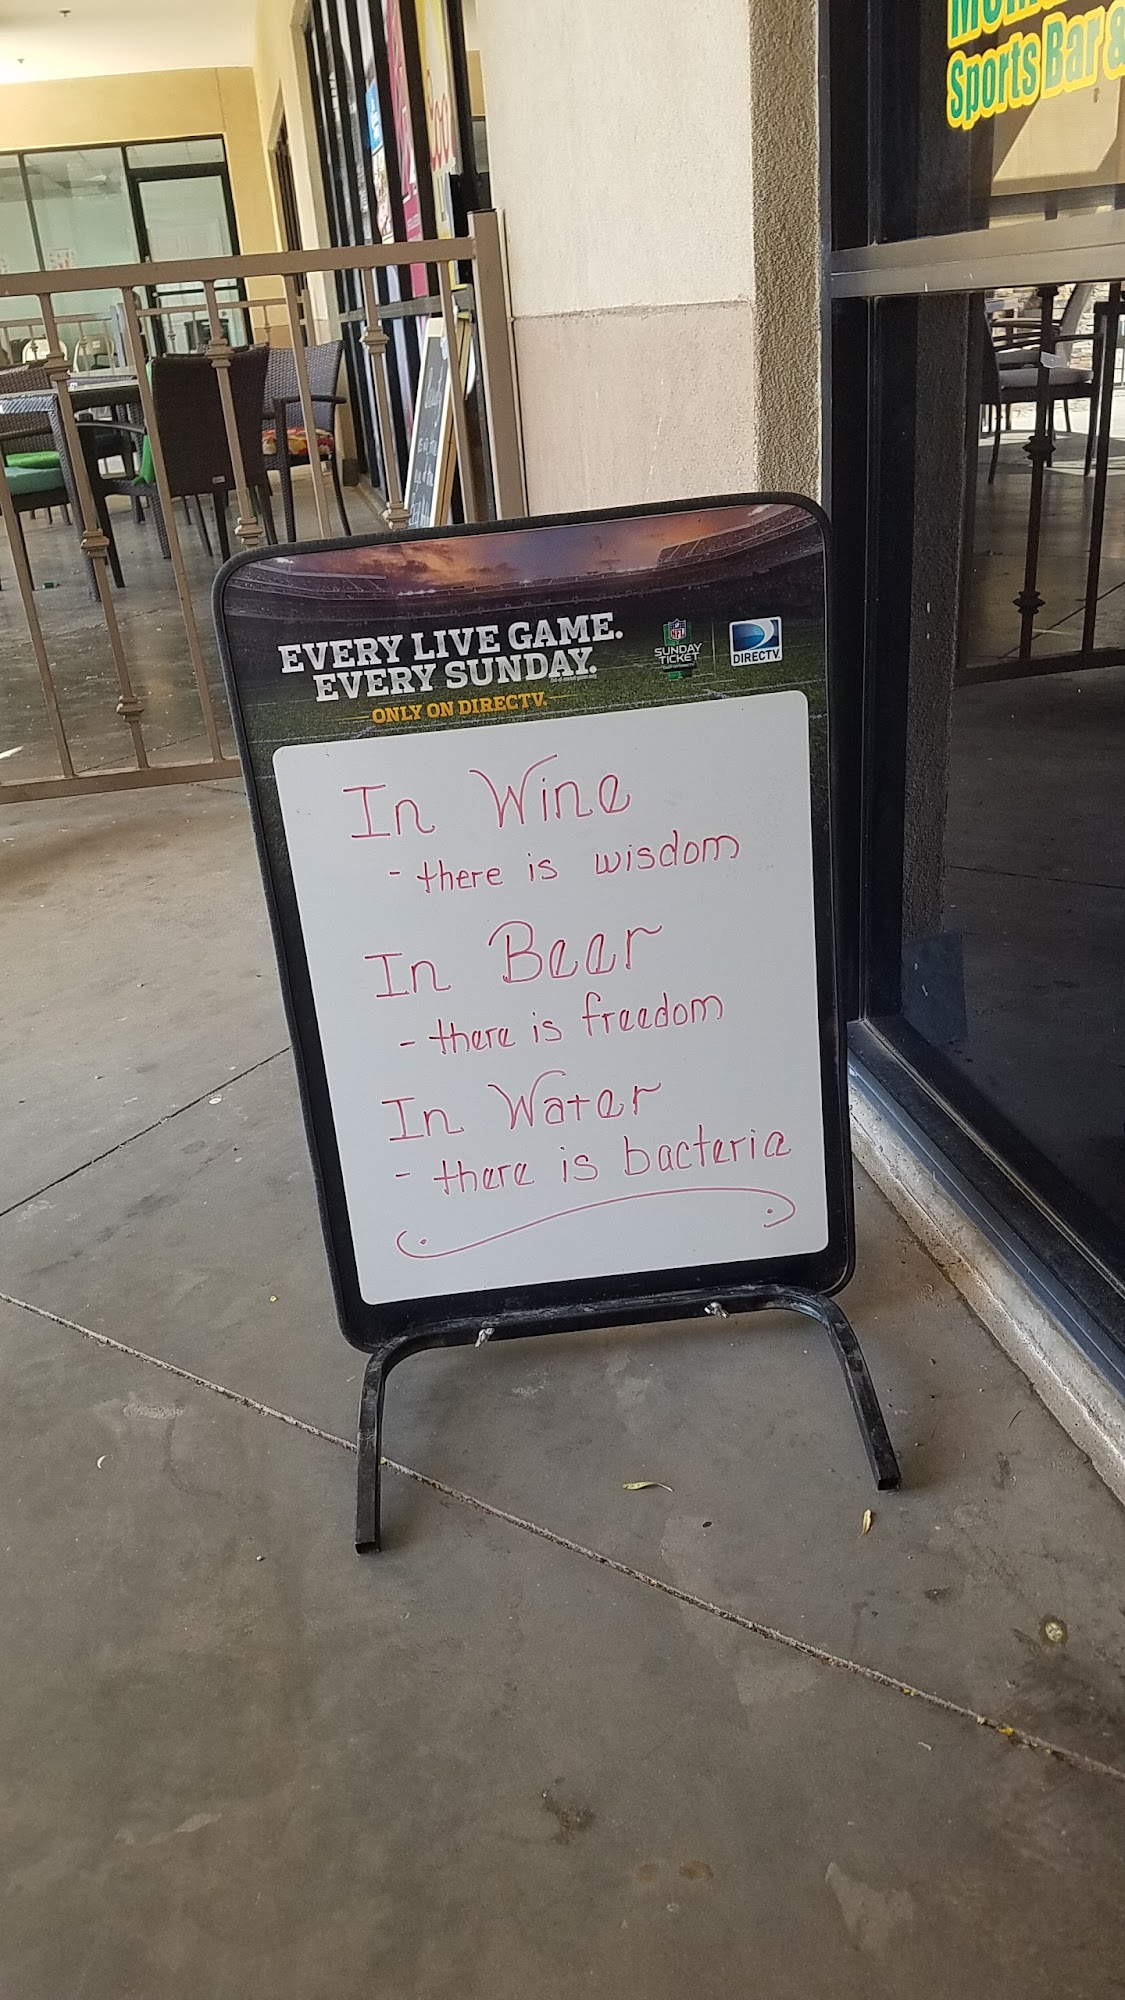 Sports Bar &
EVERY LIVE GAME.
EVERY SUNDAY.
ONLY ON DIRECTV.
NFL
SUNDAY
TICKET
DIRECTV
In Wine
- there is wisdom
In Beer
- there is freedom
In Water
- there is bacteria